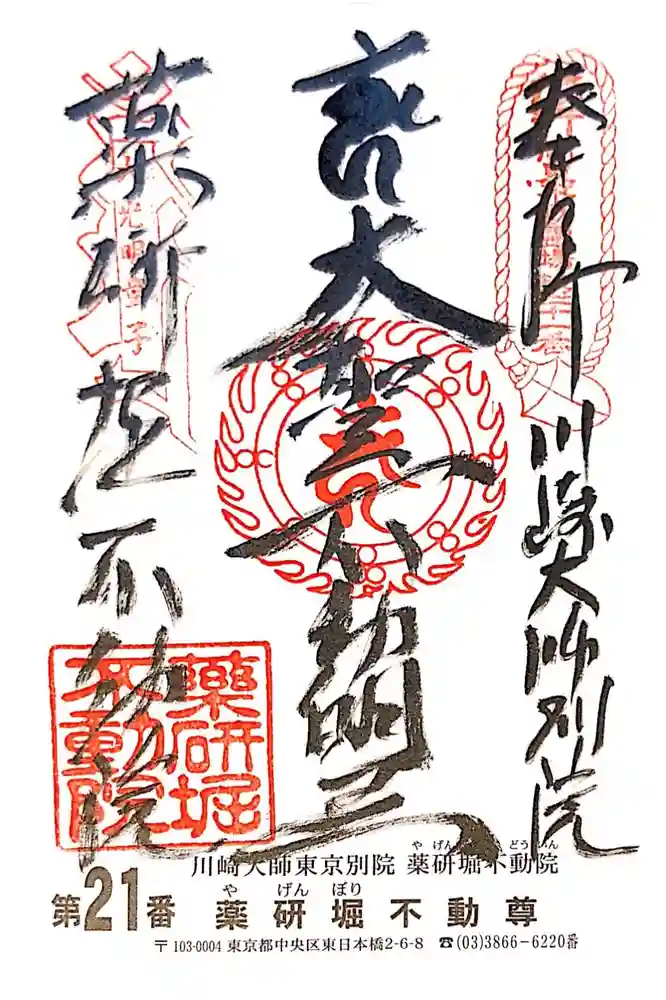 奉拝 川崎大師別院
大聖不動明王
薬研堀不動院
光明童子
薬研堀
不動院
川崎大師東京別院 薬研堀不動院
第21番 薬研堀不動尊
〒103-0004 東京都中央区東日本橋2-6-8 ☎(03)3866-6220番